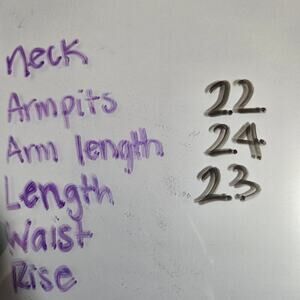 neck
Armpits 22
Arm length 24
Length 23
Waist
Rise